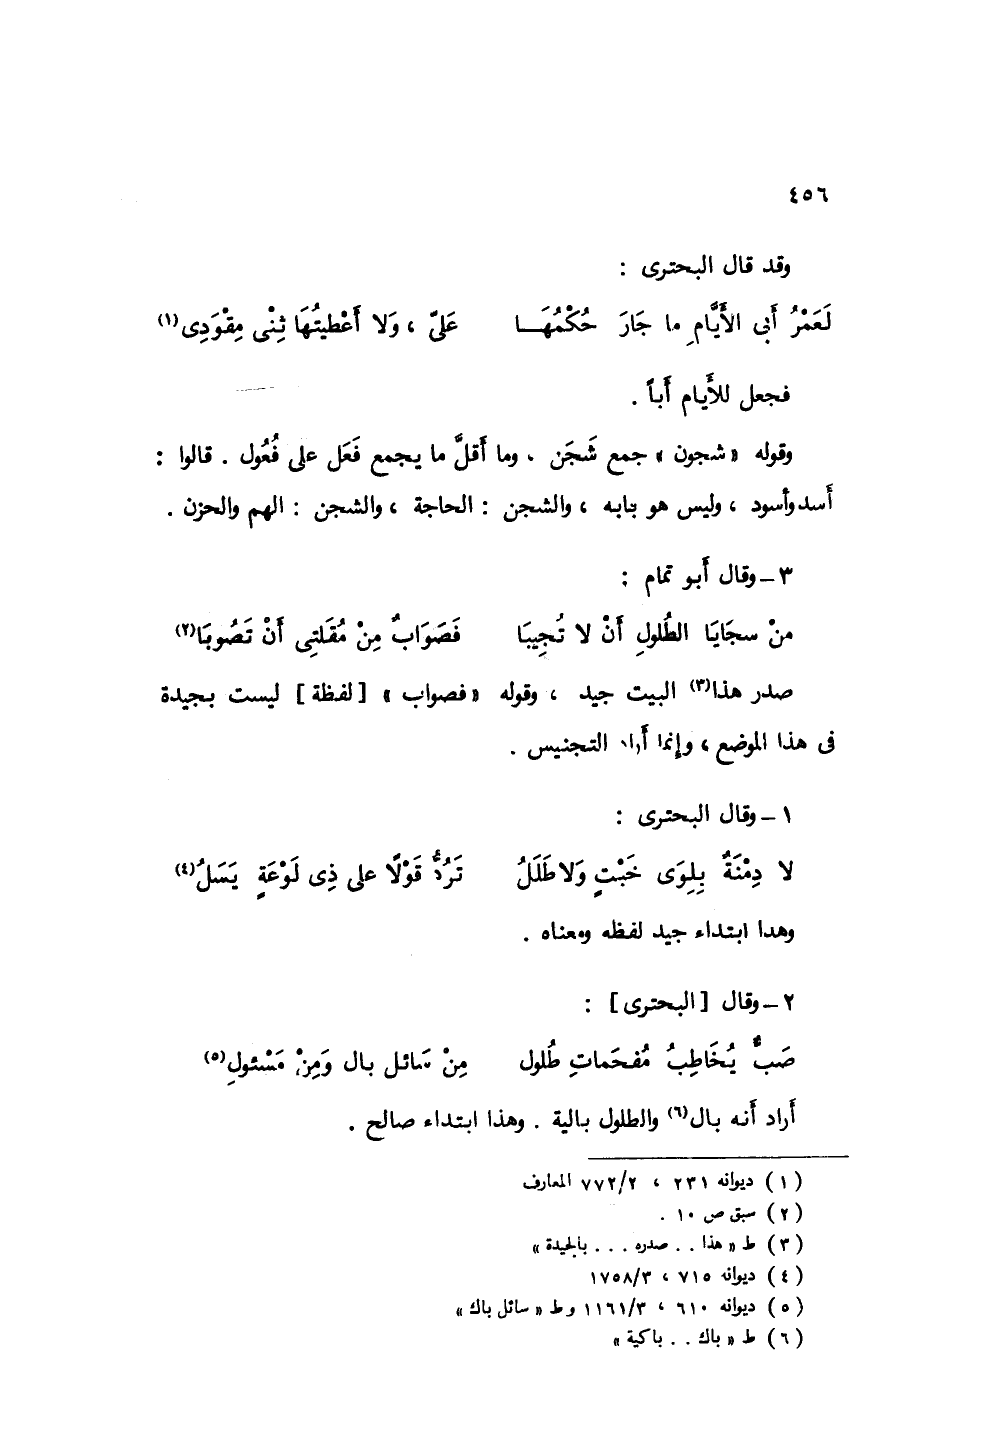 ٤٥٦
وقد قال البحترى :
لَعَمْرُ أَبى الأَيَّامِ ما جَارَ حُكْمُهَـــا عَلىّ ، وَلا أَعْطيتُهَا ثِنْى مِقْوَدِى(١)
فجعل للأَيام أَباً .
وقوله « شجون » جمع شَجَن . وما أَقلَّ ما يجمع فَعَل على فُعُول . قالوا :
أَسد وأسود ، وليس هو بابه ، والشجن : الحاجة ، والشجن : الهم والحزن .
٣ ــ وقال أَبو تمام :
منْ سجَايَا الطُلولِ أَنْ لا تُجِيبَا فَصَوَابٌ مِنْ مُقَلتِى أَنْ تَصُوبَا(٢)
صدر هذا(٣) البيت جيد ، وقوله « فصواب » [ لفظة ] ليست بجيدة
فى هذا الموضع ، وإنما أَراد التجنيس .
١ ــ وقال البحترى :
لا دِمْنَةٌ بِلِوَى خَبْتٍ وَلا طَلَلُ تَرُدُّ قَوْلًا على ذِى لَوْعَةٍ يَسَلُ(٤)
وهدا ابتداء جيد لفظه ومعناه .
٢ ــ وقال [ البحترى ] :
صَبٌّ يُخَاطِبُ مُفحَماتِ طُلول مِنْ سَائل بال وَمِنْ مَسْئولِ(٥)
أَراد أَنه بال(٦) والطلول بالية . وهذا ابتداء صالح .
( ١ ) ديوانه ٢٣١ ، ٧٧٢/٢ المعارف
( ٢ ) سبق ص ١٠ .
( ٣ ) ط « هذا . . صدره . . . بالجيدة »
( ٤ ) ديوانه ٧١٥ ، ١٧٥٨/٣
( ٥ ) ديوانه ٦١٠ ، ١١٦١/٣ و ط « سائل باك »
( ٦ ) ط « باك . . باكية »